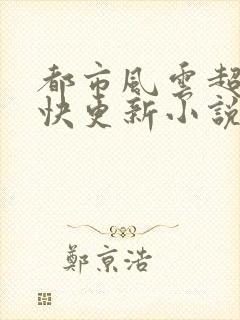 都市風雲超
快更新小説
鄭京浩